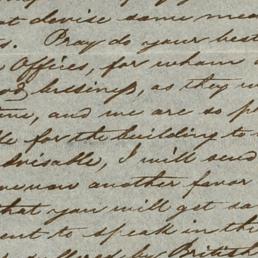 at devise some mea
s. Pray do your best
Offices, for whom
blessings, as they w
me, and we are so p
le for the building to
advisable, I will send
me now another favor
that you will get sa
ent to speak in th
offered by British